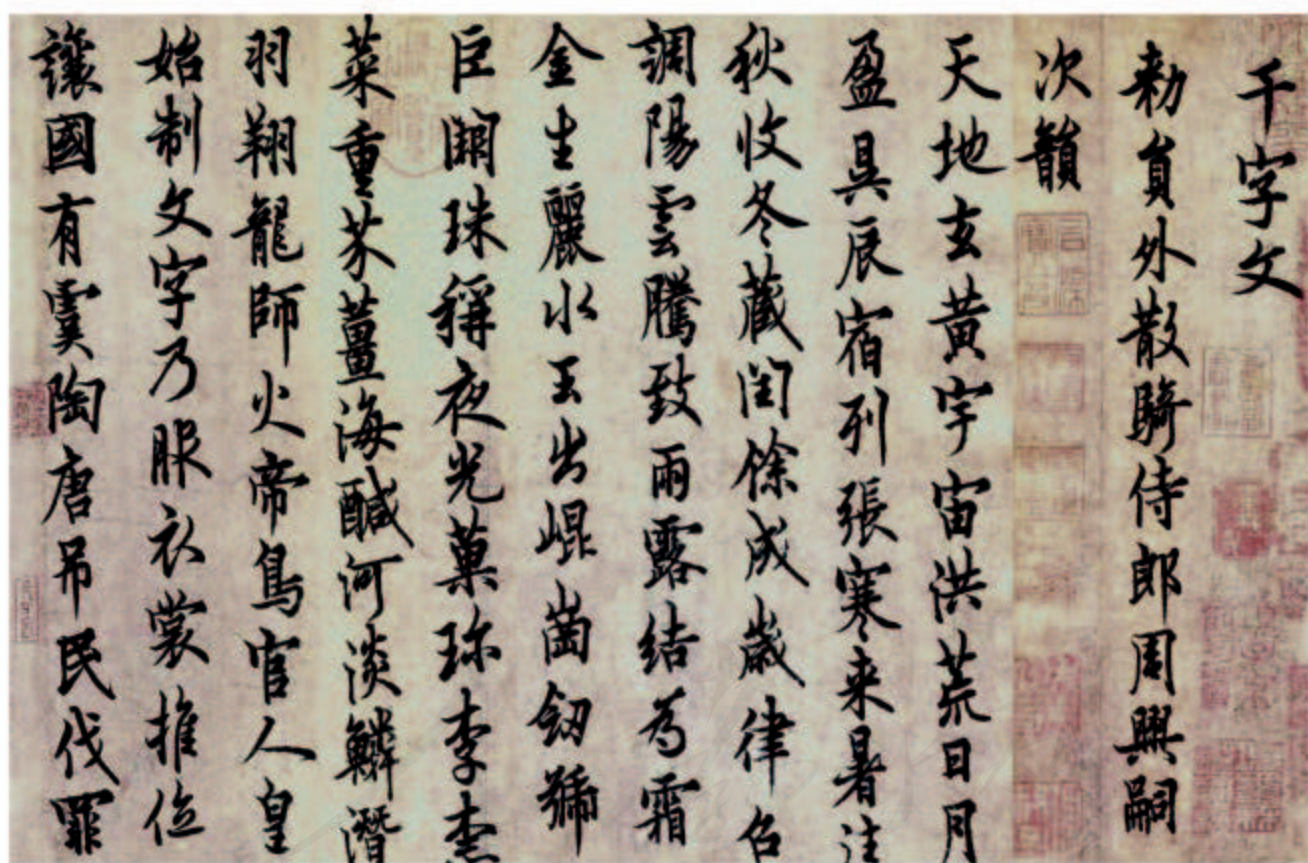 千字文
勑員外散騎侍郎周興嗣
次韻
天地玄黃宇宙洪荒日月
盈昃辰宿列張寒来暑往
秋收冬藏閏餘成歲律召
調陽雲騰致雨露結為霜
金生麗水玉出崐崗劒號
巨闕珠稱夜光菓珎李柰
菜重芥薑海醎河淡鱗潛
羽翔龍師火帝鳥官人皇
始制文字乃服衣裳推位
讓國有虞陶唐弔民伐罪